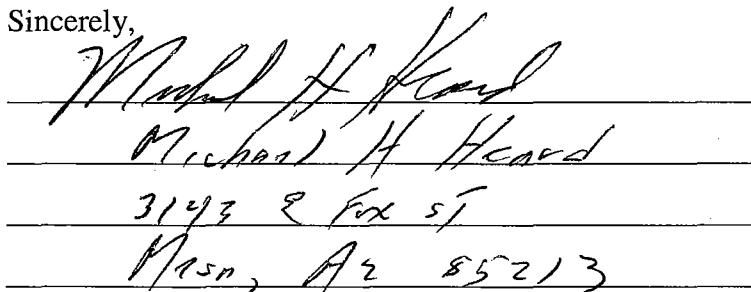 Sincerely,
Michael H Heard
Michael H Heard
3143 E Fox ST
Mesa, Az 85213